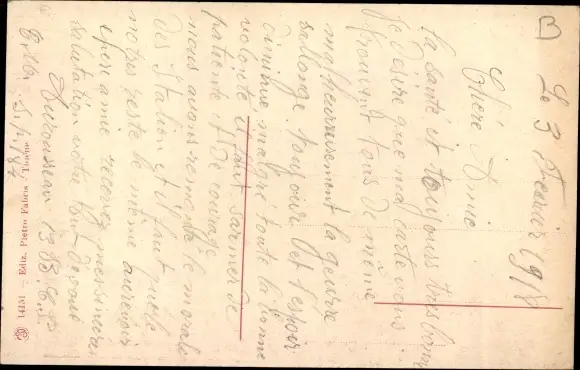 B
Le 3 Fevrier 1918
Chère Amie
la santé et toujours tres bonne
Je désire que ma carte vous
trouvent tous de même
malheureusement la guerre
sallonge toujours let lespoir
diminue malgré toute la bonne
volonté il faut sarmer de
patiente et de courage
nous avons remonté le morale
des Italien et il faut que le
notre reste le même
chere amie recevez mes meilleurs
salutation votre tout devoué
13 B.C.P.
S.P. 184
14151 - Ediz. Pietro Fabris - Udine